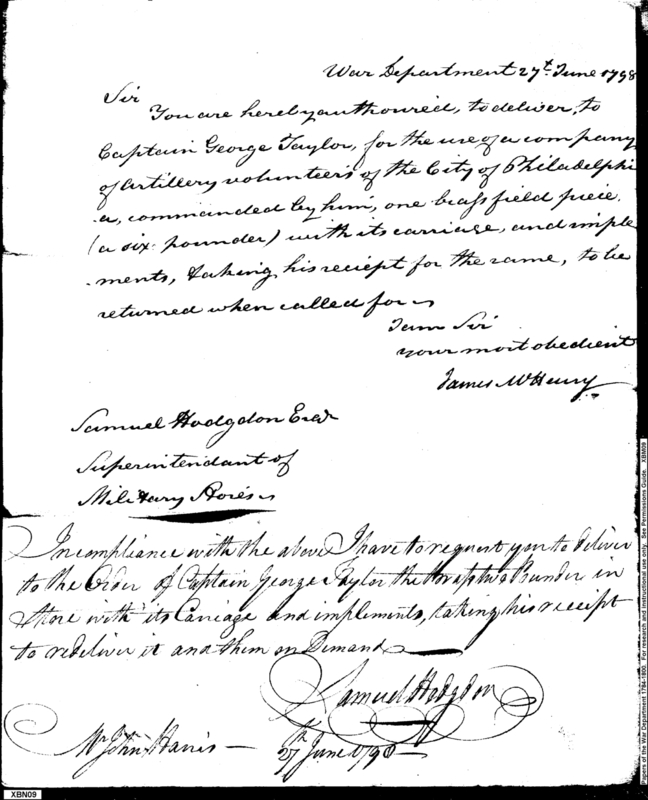 War Department 27th June 1798
Sir
You are hereby authoured, to deliver, to
Captain George Taylor, for the use of a company
of artillery volunteers of the City of Philadelphi
a, commanded by him, one brass field peice.
(a six pounder) with its carriage, and imple
ments, taking his reciept for the same, to be
returned when called for
I am Sir
your most obedient
James McHenry
Samuel Hodgdon Esqr
Superintendant of
Military Stores
In compliance with the above I have to request you to deliver
to the Order of Captain George Taylor the brass Pounder in
Store with its Carriage and implements, taking his receipt
to redeliver it and them on Demand
Samuel Hodgdon
Mr John Harris
27th June 1798
XBN09
Papers of the War Department 1784-1800. For research and instructional use only. See Permissions Guide. XBN09